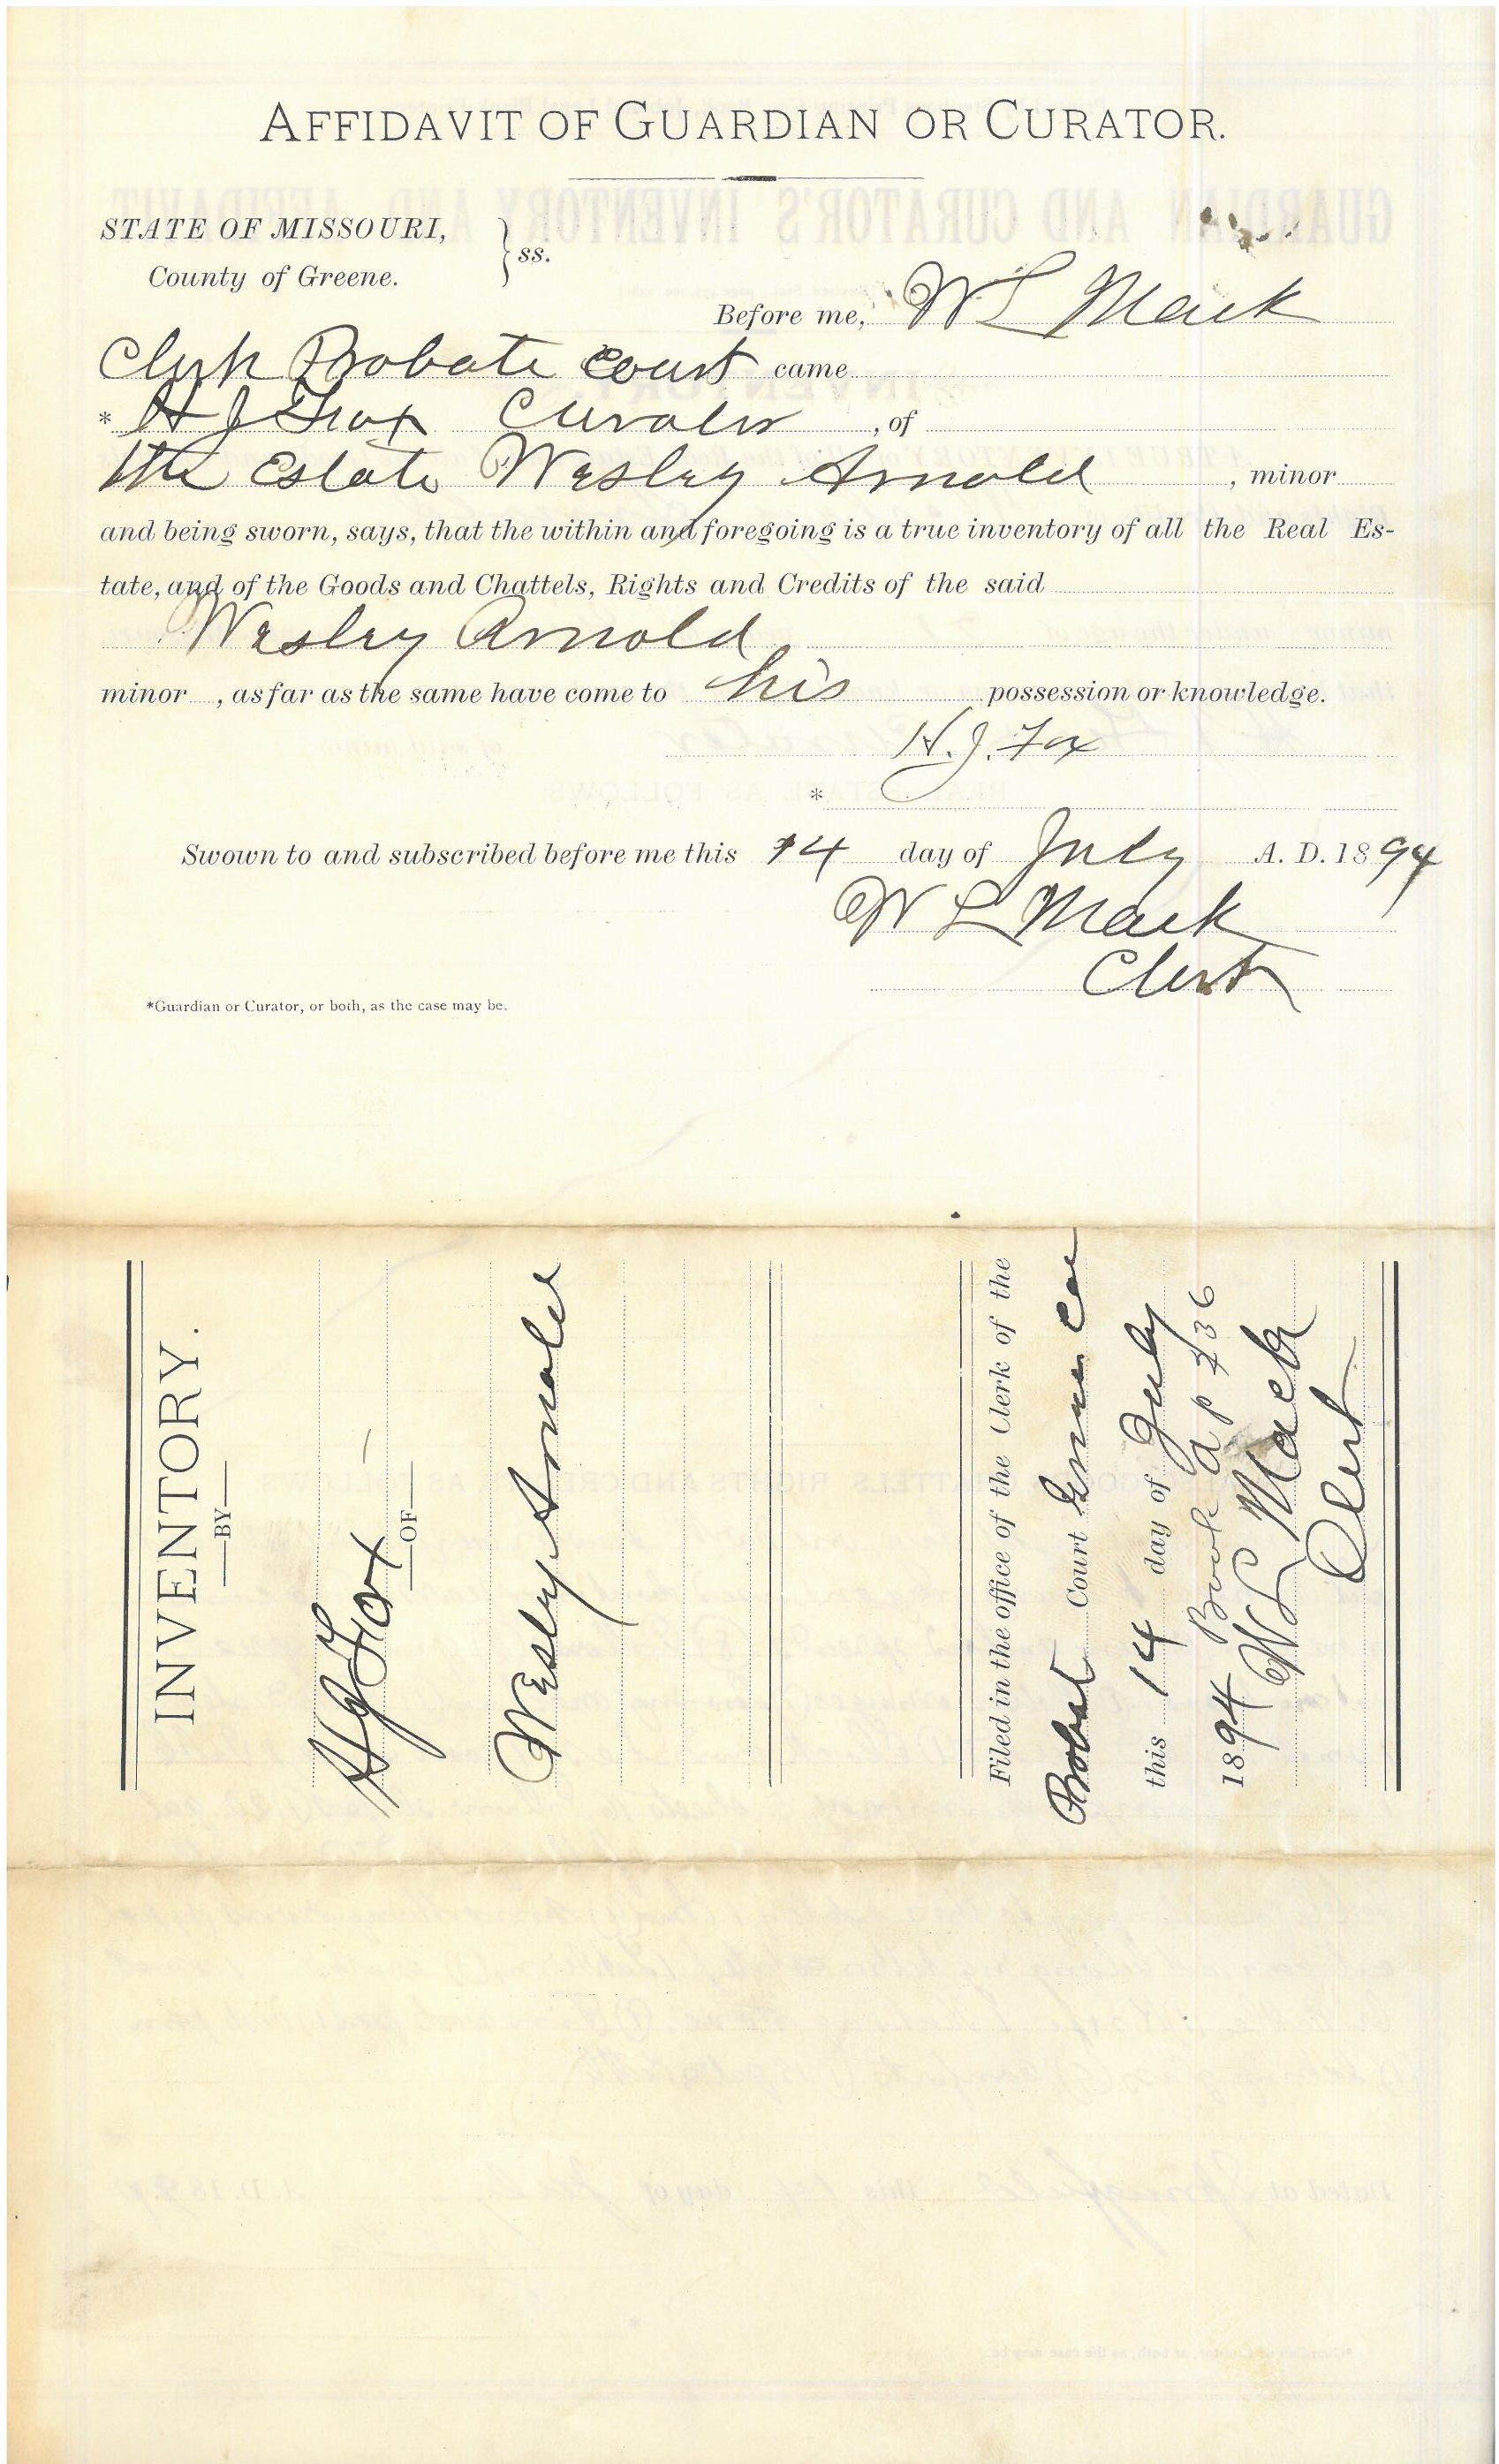 AFFIDAVIT OF GUARDIAN OR CURATOR.
STATE OF MISSOURI,
County of Greene. } ss.
Before me, W L Mack
Clerk Probate Court came
* H J Fox Curator , of
the Estate Wesley Arnold , minor
and being sworn, says, that the within and foregoing is a true inventory of all the Real Es-
tate, and of the Goods and Chattels, Rights and Credits of the said
Wesley Arnold
minor , as far as the same have come to his possession or knowledge.
H. J. Fox
*
Swown to and subscribed before me this 14 day of July A. D. 1894
W L Mack
Clerk
*Guardian or Curator, or both, as the case may be.
INVENTORY.
BY
H J Fox
OF
Wesley Arnold
Filed in the office of the Clerk of the
Probat Court Greene Co
this 14 day of July
1894 Book a p 736
W L Mack
Clerk